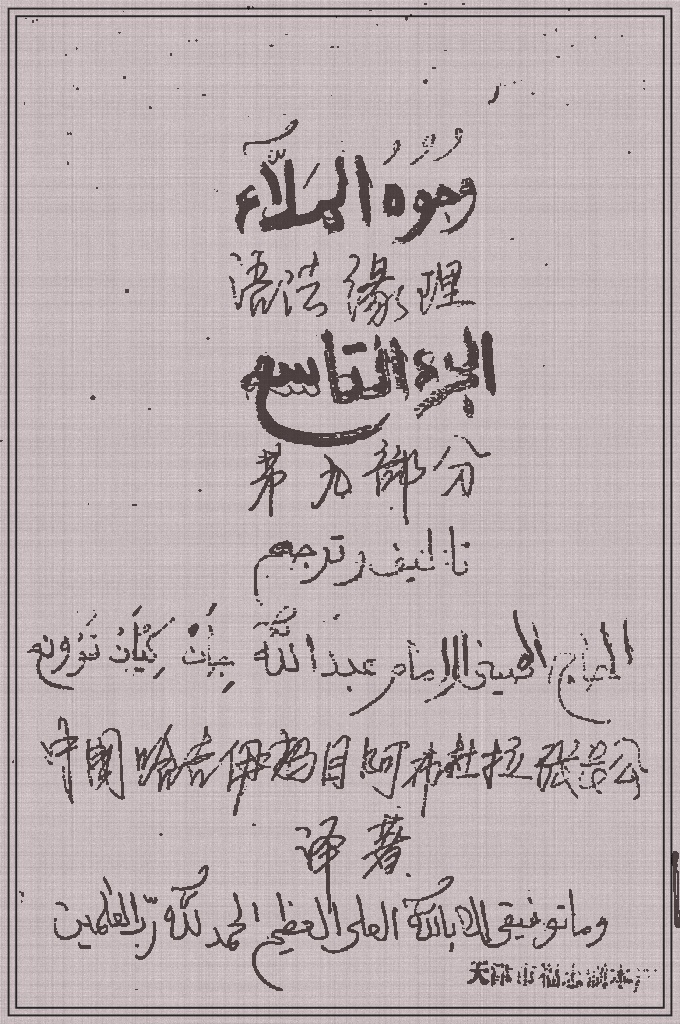 وجوه الملاء
语法缘理
الجزء التاسع
第九部分
تاليف وترجمه
الحاج الصيني الامام عبد الله
中国哈吉伊玛目阿布杜拉张岳公
译著
وما توفيقي الا بالله العلي العظيم الحمد لله رب العلمين